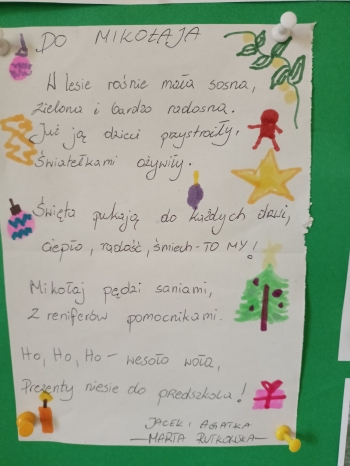 DO MIKOŁAJA
W lesie rośnie mała sosna,
zielona i bardzo radosna.
Już ją dzieci przystroiły,
światełkami ożywiły.
Święta pukają do każdych drzwi,
ciepło, radość, śmiech - TO MY!
Mikołaj pędzi saniami,
z reniferów pomocnikami.
Ho, Ho, Ho - wesoło woła,
Prezenty niesie do przedszkola!
JACEK I AGATKA
MARTA RUTKOWSKA